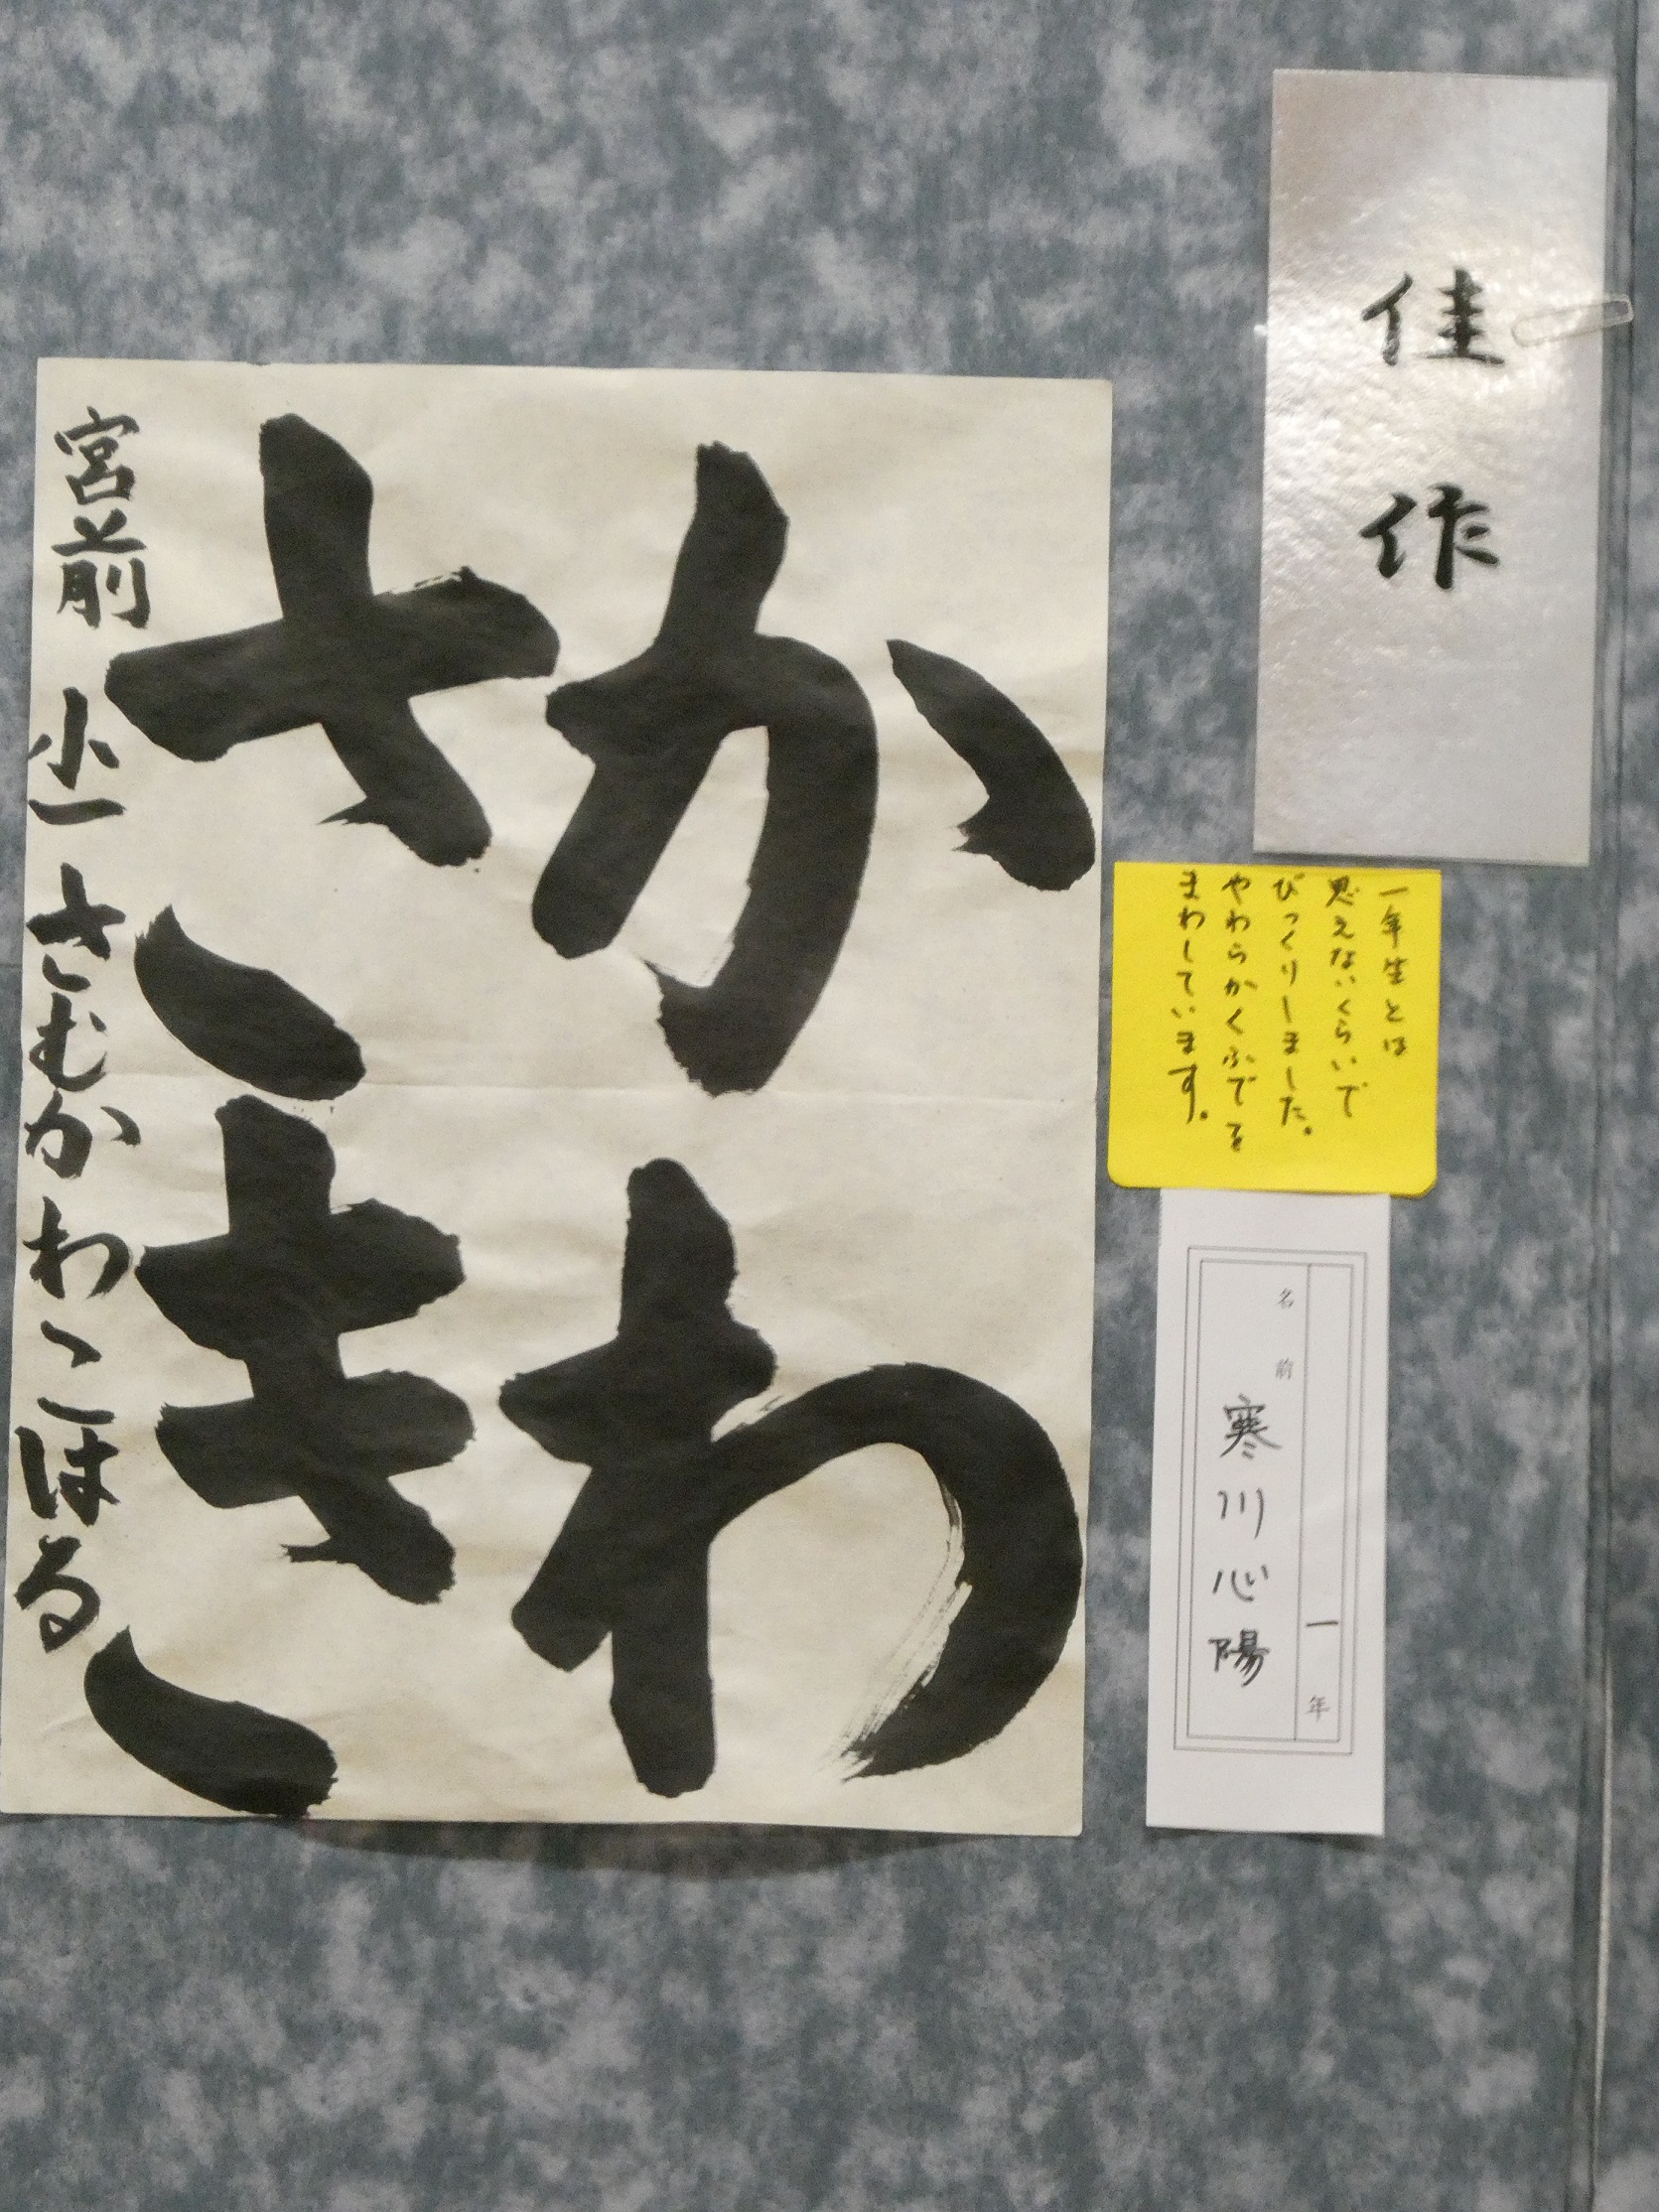 佳作
一年生とは
思えないくらいで
びっくりしました。
やわらかくふでを
まわしています。
一年
名前 寒川心陽
かわ
さき
宮前 小一 さむかわこはる